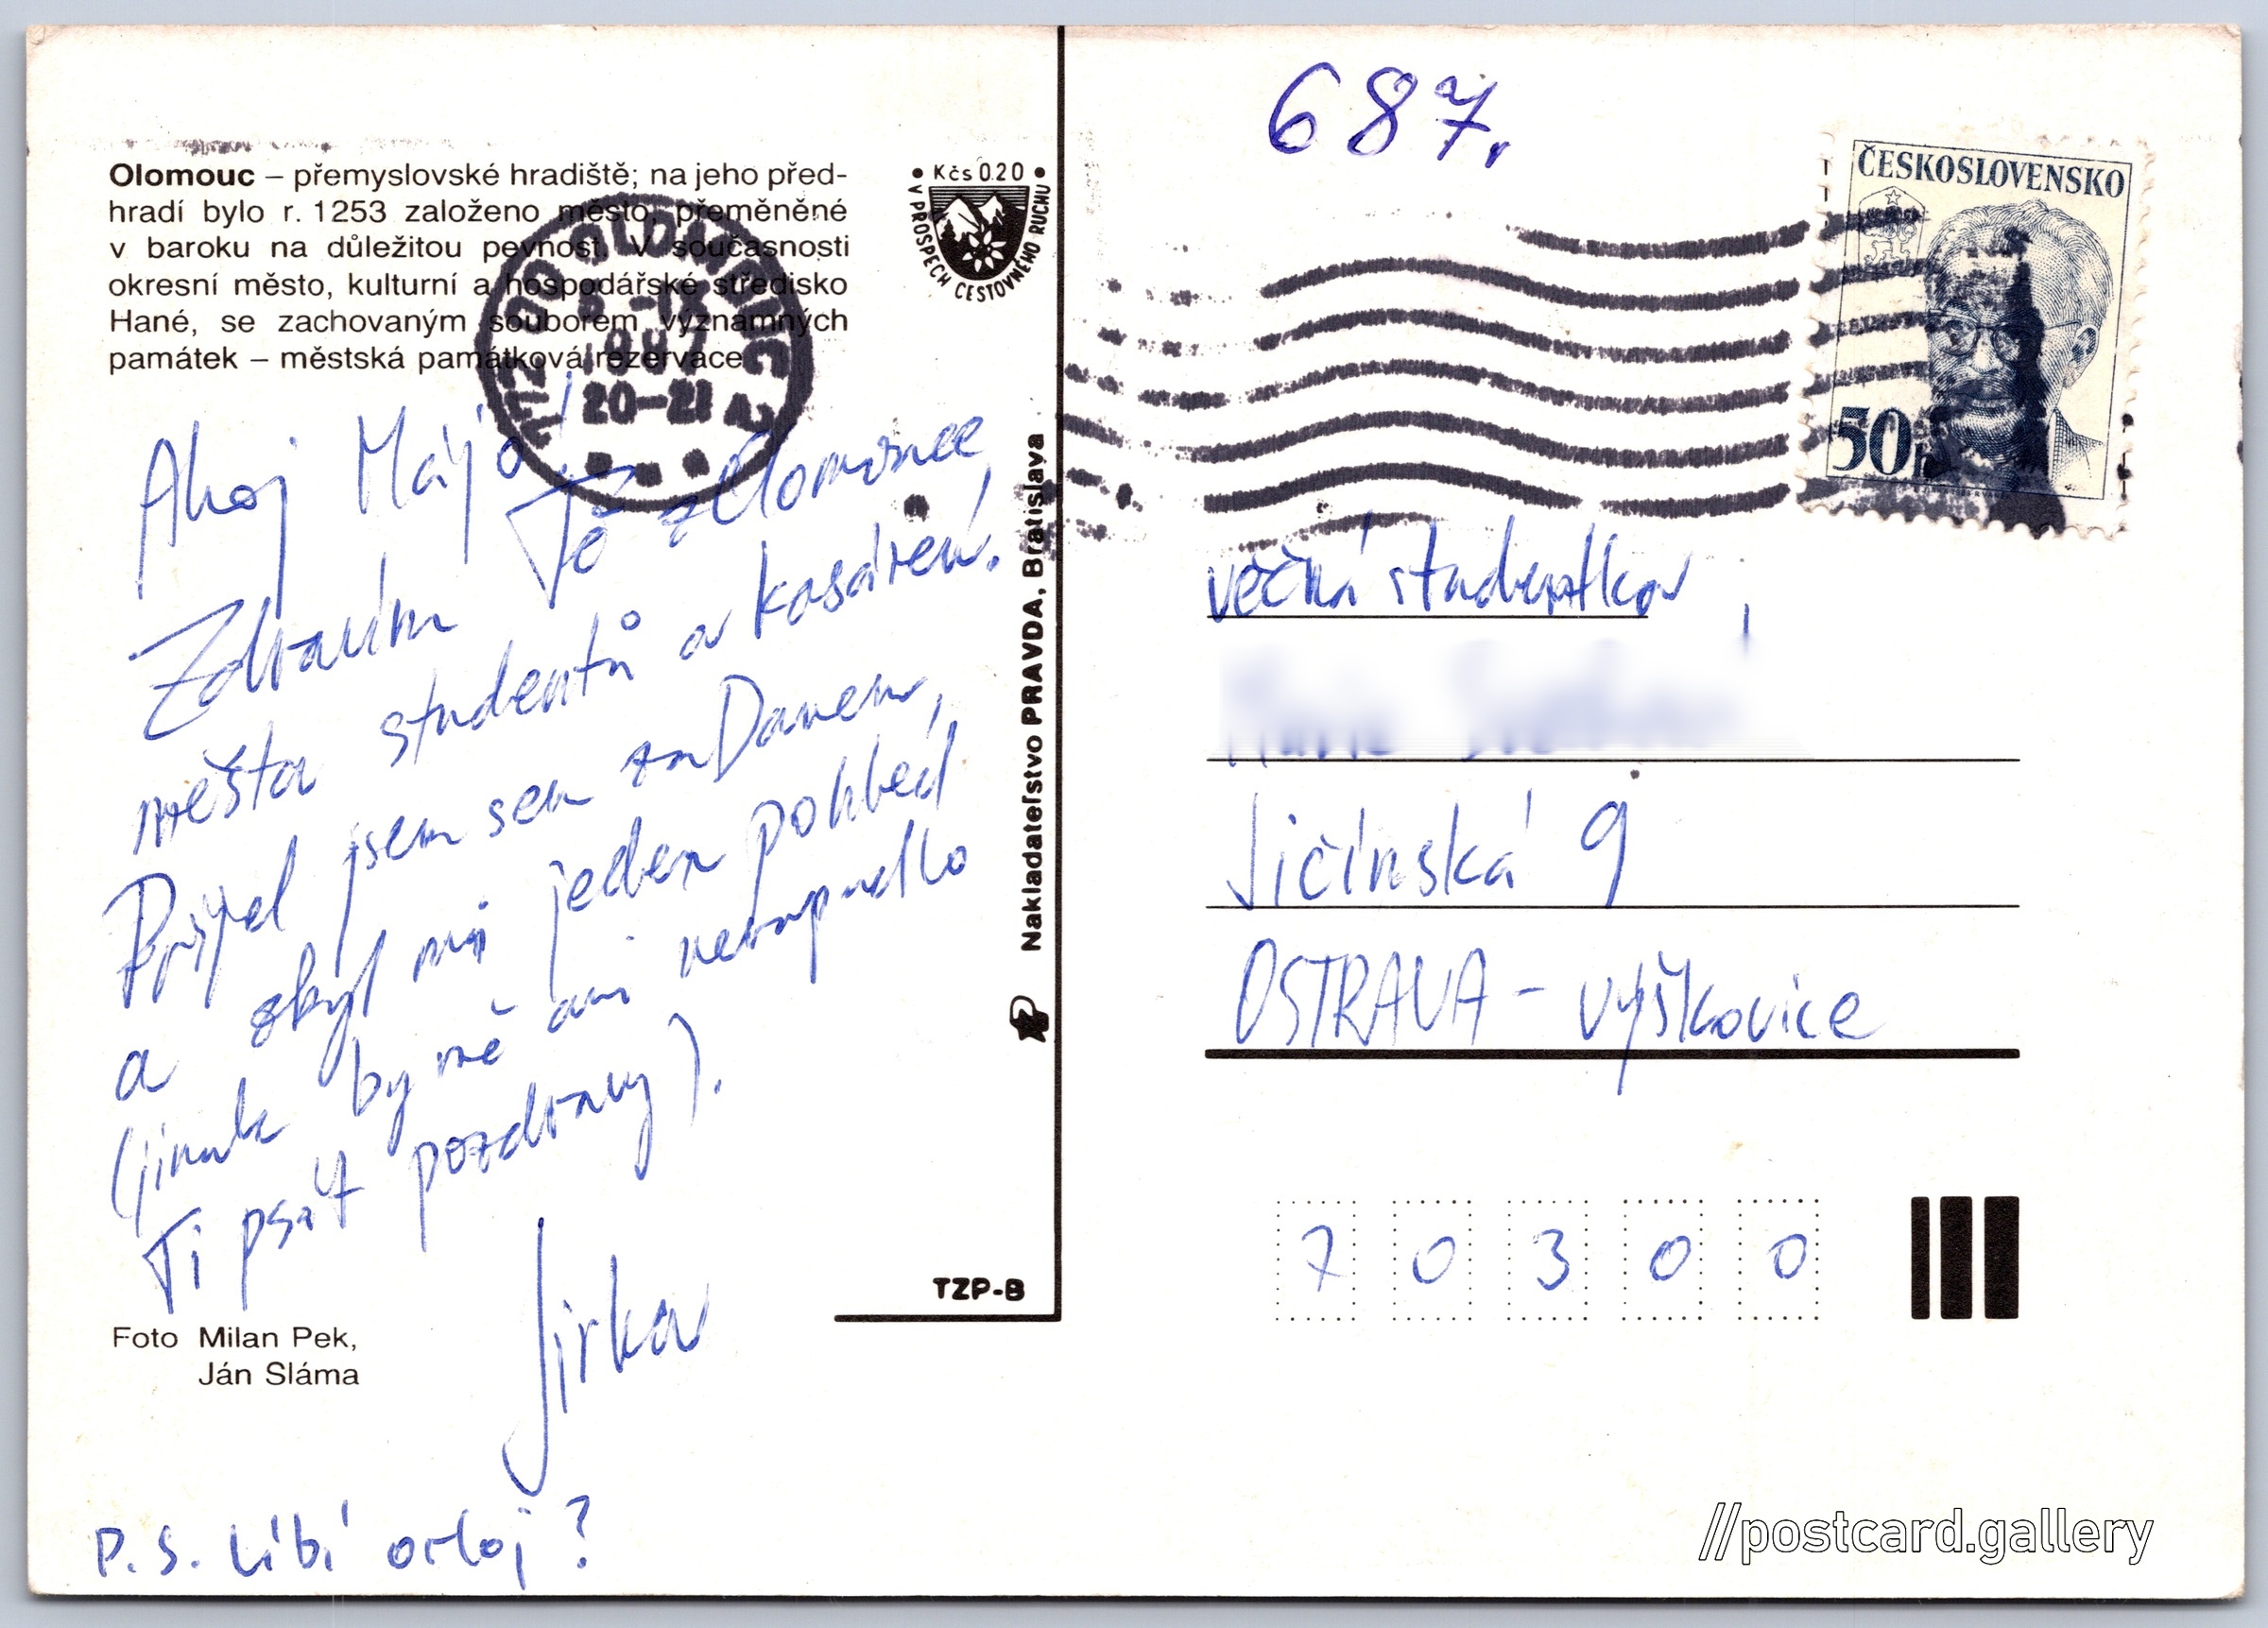 Olomouc – přemyslovské hradiště; na jeho před-
hradí bylo r. 1253 založeno město, přeměněné
v baroku na důležitou pevnost. V současnosti
okresní město, kulturní a hospodářské středisko
Hané, se zachovaným souborem významných
památek – městská památková rezervace
20–21
Kčs 0.20
V PROSPĚCH CESTOVNÉHO RUCHU
Ahoj Májo!
Zdravím Tě z Olomouce,
města studentů a kasáren.
Přijel jsem sem za Danem,
a zbyl mi jeden pohled
(jinak by mě ani nenapadlo
Ti psát pozdravy).
Jirka
P.S. Líbí orloj?
Foto Milan Pek,
Ján Sláma
Nakladateľstvo PRAVDA, Bratislava
TZP-B
687.
ČESKOSLOVENSKO
50h
věčná studentka,
Jičínská 9
OSTRAVA – Výškovice
70300
//postcard.gallery